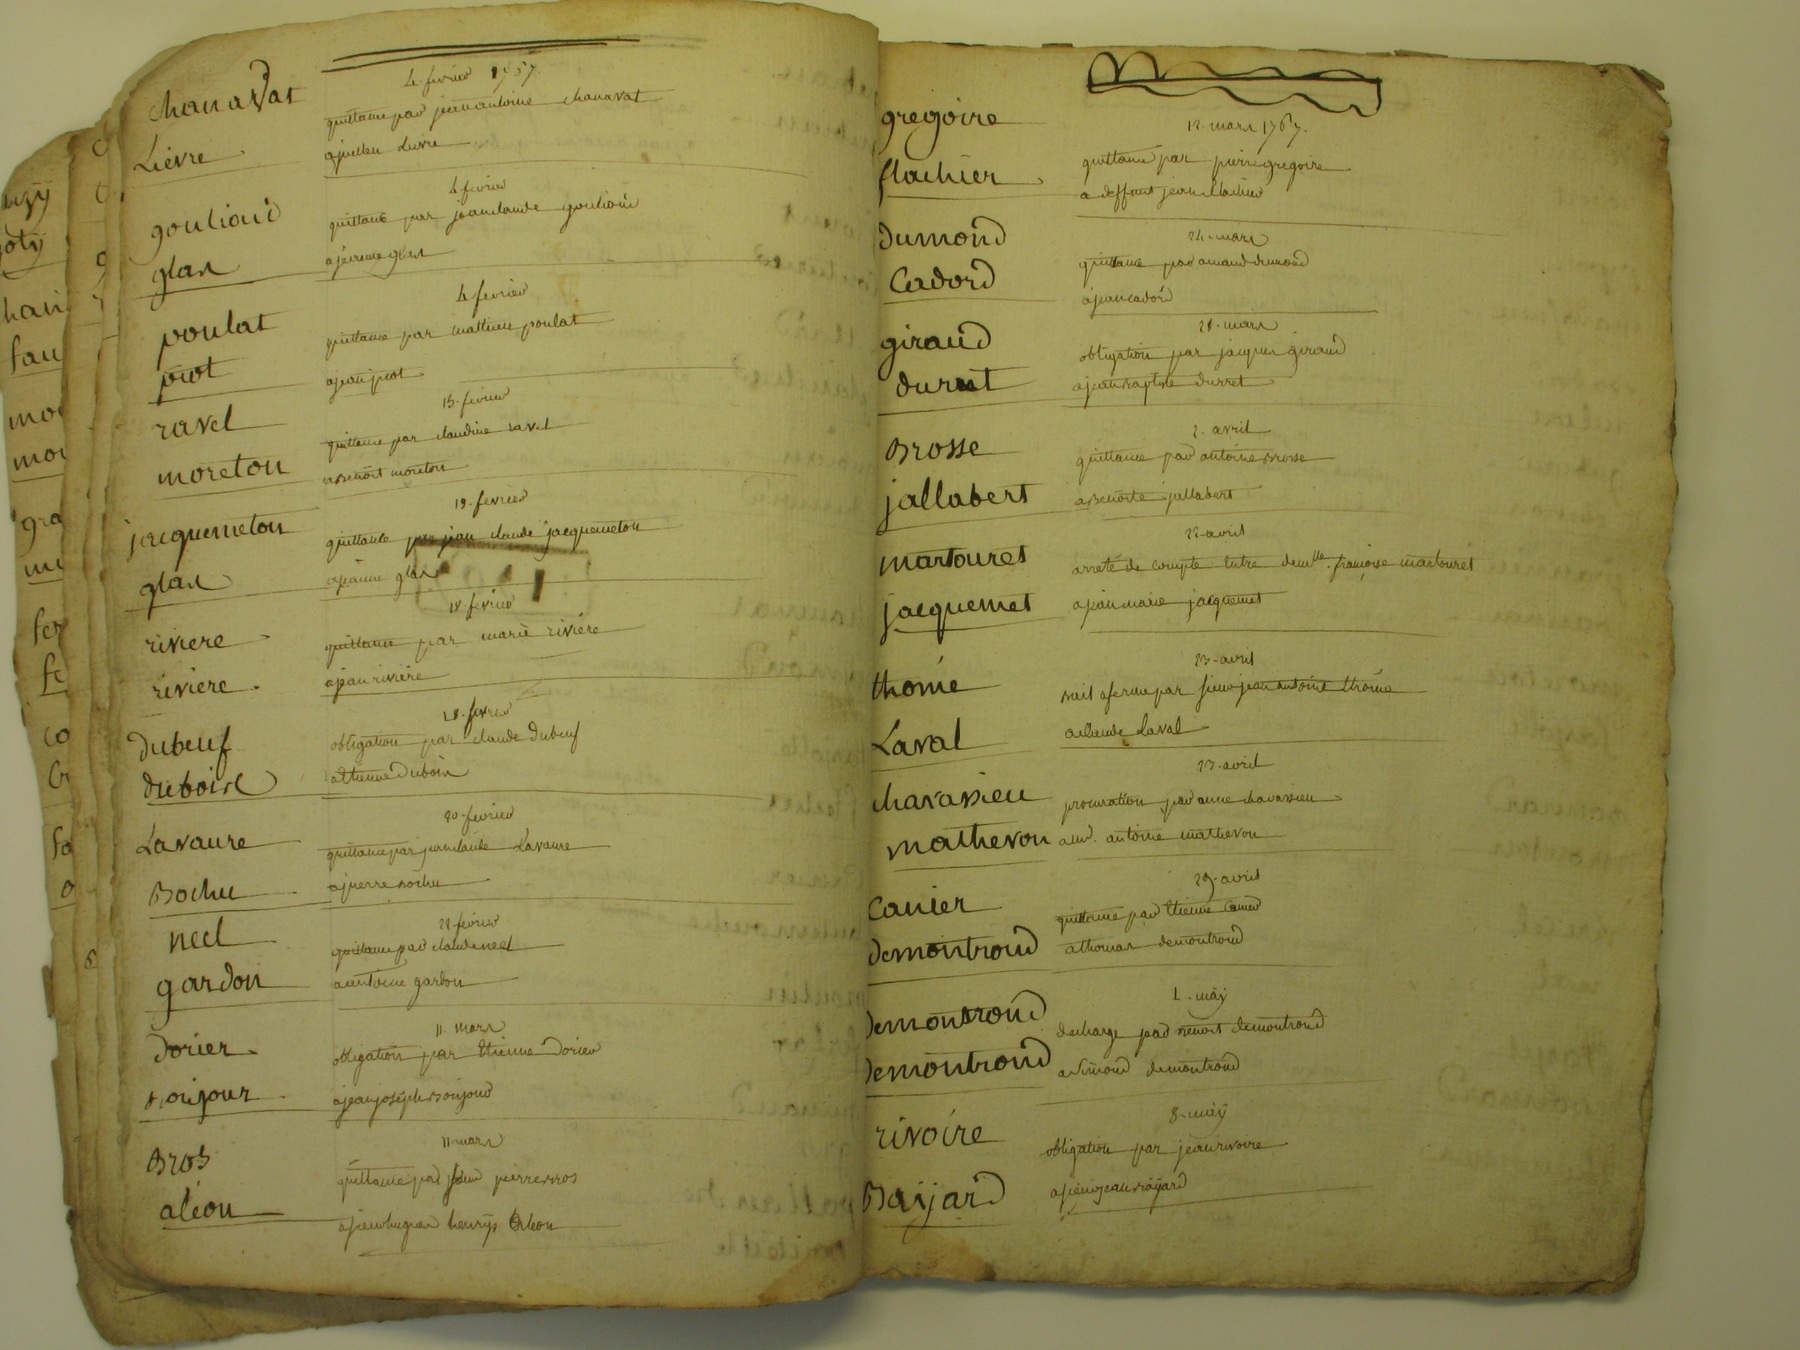 4 fevrier 1767.
chanavat
quittance par jean antoine chanavat
Lievre
a jullien Lievre
4 fevrier
goulioud
quittance par jean claude goulioud
glas
a jerome glas
4 fevrier
poulat
quittance par mathieu poulat
piot
a jean piot
15. fevrier
ravel
quittance par claudine ravel
moreton
a Benoit moreton
19. fevrier
jacquemeton
quittance par jean claude jacquemeton
glas
glas
18. fevrier
riviere
quittance par marie riviere
riviere
a jean riviere
18. fevrier
dubeuf
obligation par claude dubeuf
duboisl
a etienne dubois
20. fevrier
Lavaure
quittance par jean claude Lavaure
Bochu
a pierre Bochu
22 fevrier
neel
quittance par claude neel
gardon
a antoine gardon
11. mars
dorier
obligation par etienne dorier
Bonjour
a jean joseph Bonjour
11 mars
Bros
quittance par sieur pierre Bros
aleon
a sieur hugues henrys aleon
gregoire
12. mars 1767.
quittance par pierre gregoire
flachier
a deffunt jean flachier
dumond
24. mars
quittance par amand dumond
Cadord
a jean cadord
28. mars
giraud
obligation par jacques giraud
durret
a jean Baptiste durret
2. avril
Brosse
quittance par antoine Brosse
jallabert
a Benoite jallabert
22 avril
martouret
arreté de compte entre demlle. françoise martouret
jacquemet
a jean marie jacquemet
23. avril
thomé
Bail a ferme par sieur jean antoine thomé
Laval
a claude Laval
23. avril
chavassieu
procuration par anne chavassieu
mathevon
a mr. antoine mathevon
29. avril
Canier
quittance par etienne Canier
demontrond
a thomas demontrond
1. may
demontrond
decharge par Benoit demontrond
demontrond
a simond demontrond
8. may
rivoire
obligation par jean rivoire
Bayard
a sieur jean Bayard